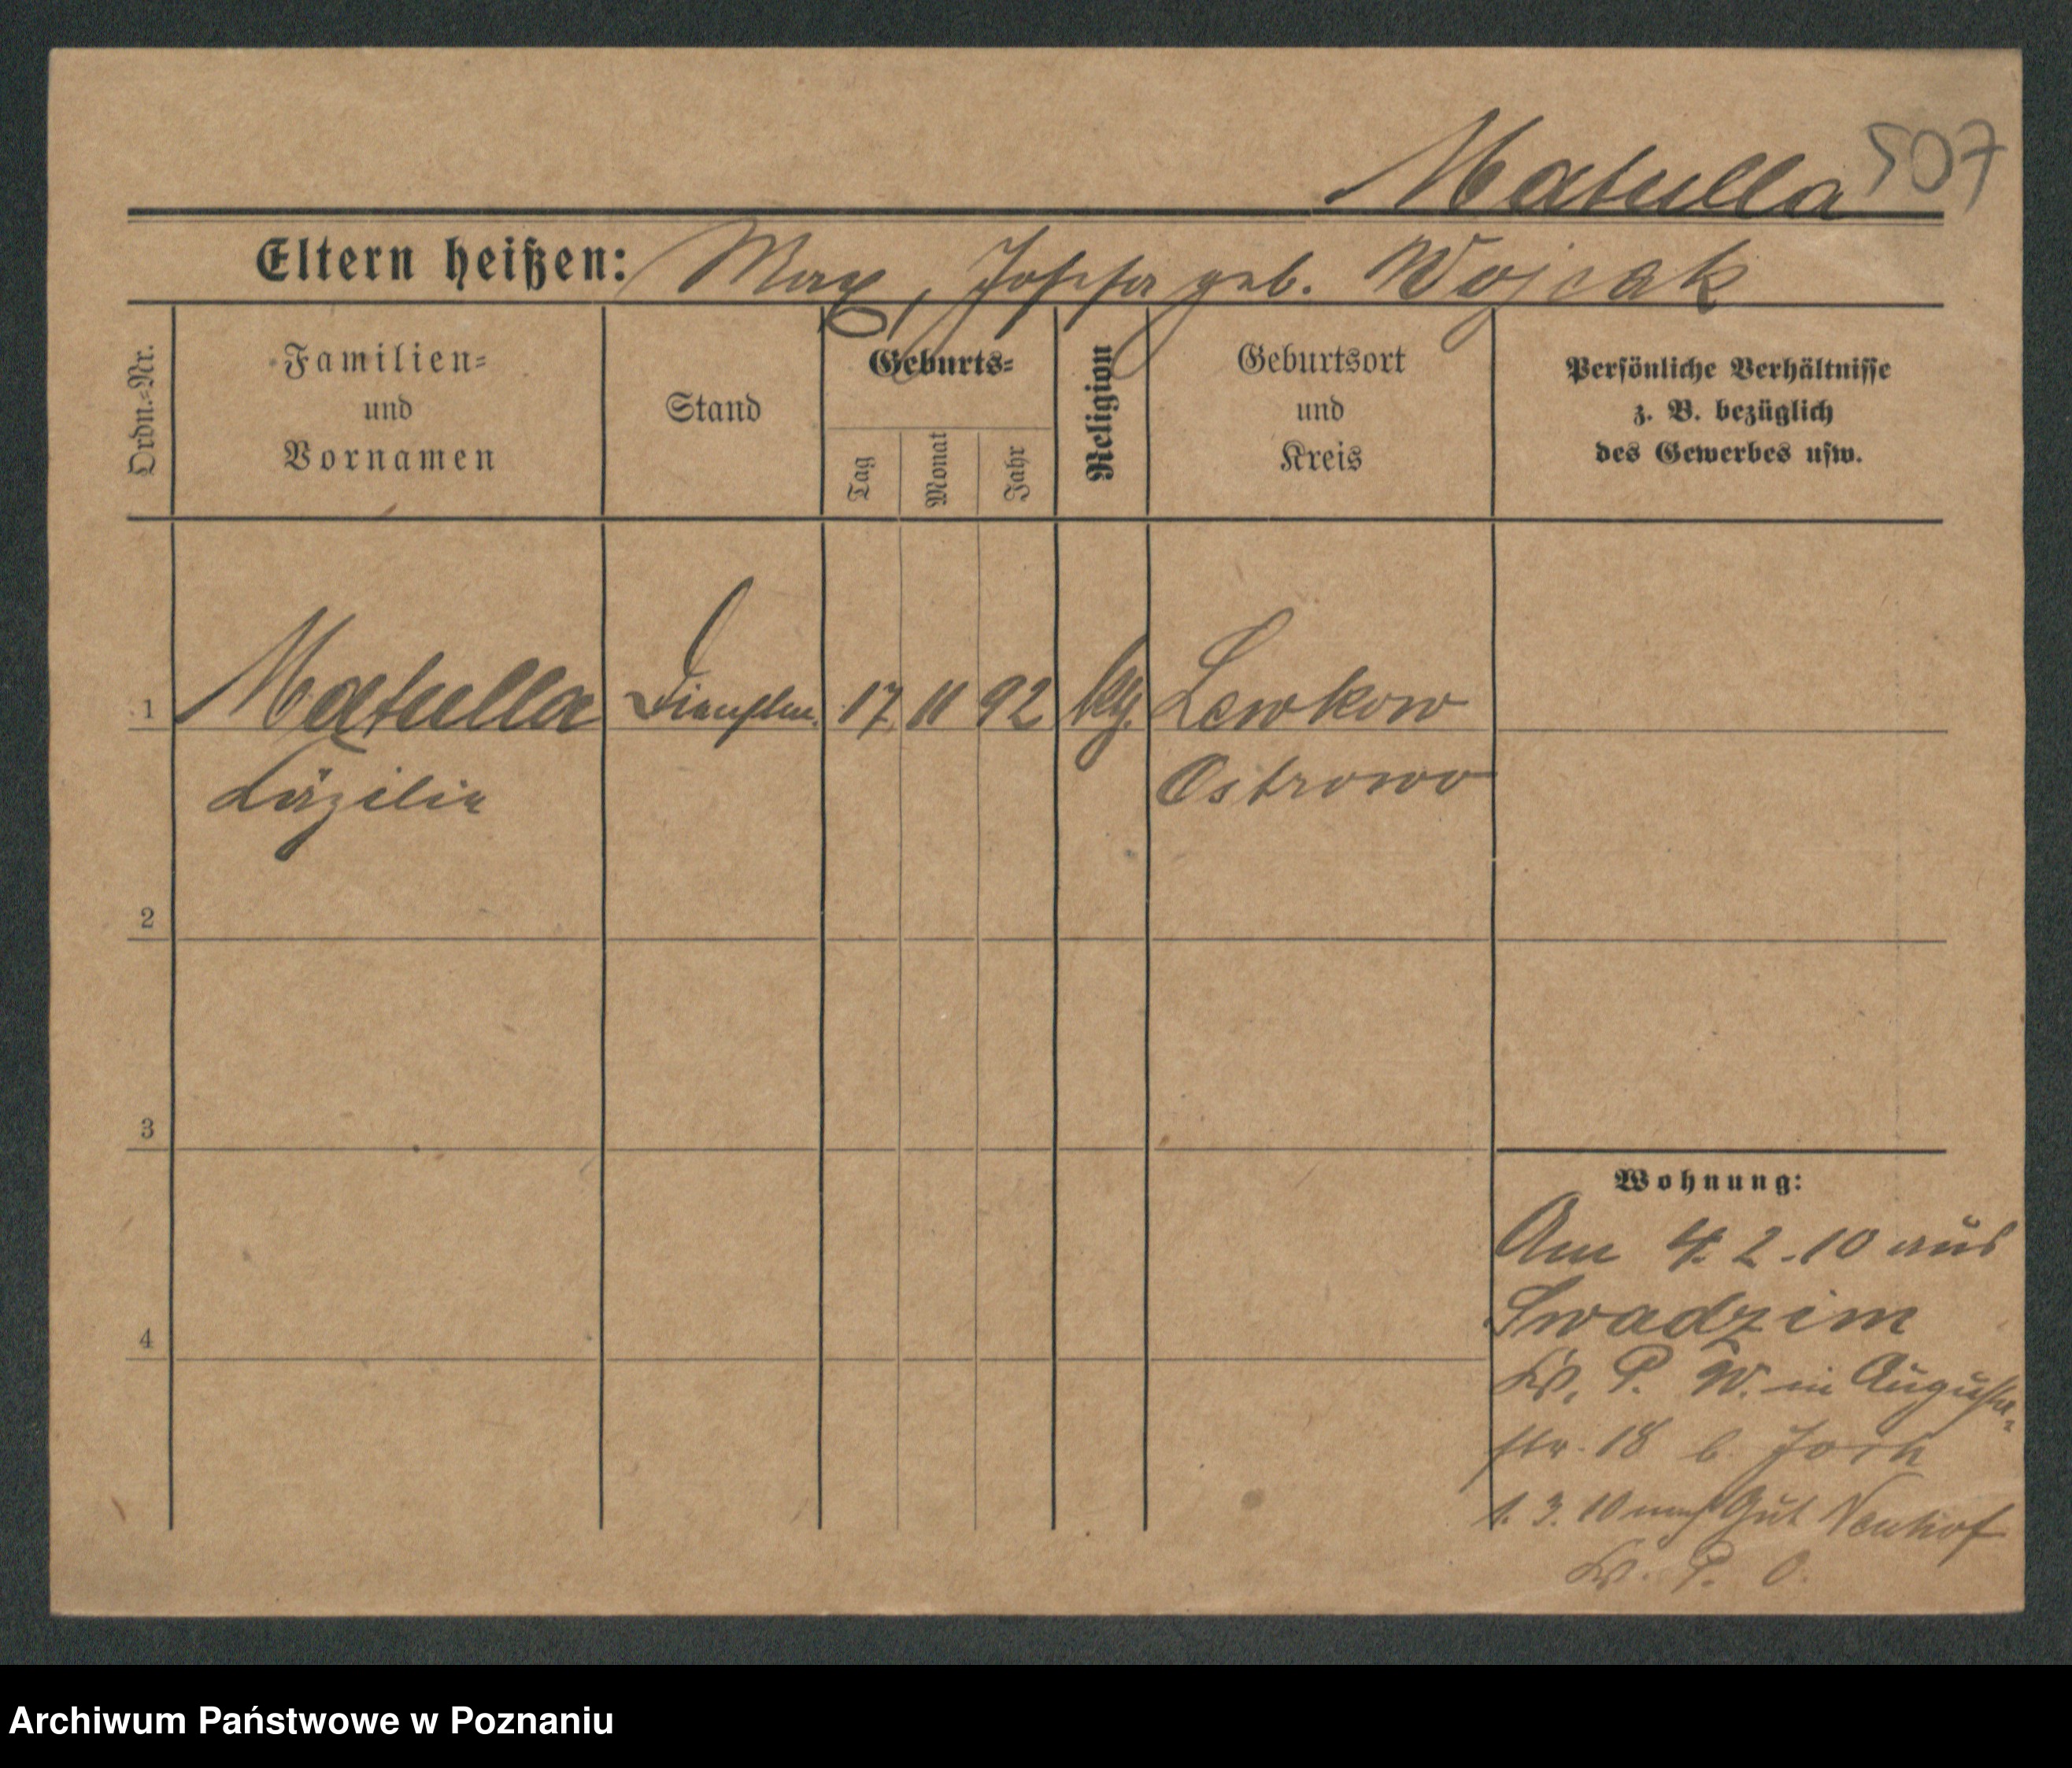 507
Matulla
Eltern heißen: Max, Josefa geb. Wojcak
Ordn.-Nr.
Familien-
und
Vornamen
Stand
Geburts-
Tag
Monat
Jahr
Religion
Geburtsort
und
Kreis
Persönliche Verhältnisse
z. B. bezüglich
des Gewerbes usw.
1 Matulla 17 11 92 Lewkow
Cäzilie Ostrowo
2
3
4
Wohnung:
Am 4. 2. 10 aus
Swadzim
Kr. P. W. in Augusta-
str. 18 b.
1. 3. 10 nach Gut Neuhof
Kr. P. O.
Archiwum Państwowe w Poznaniu